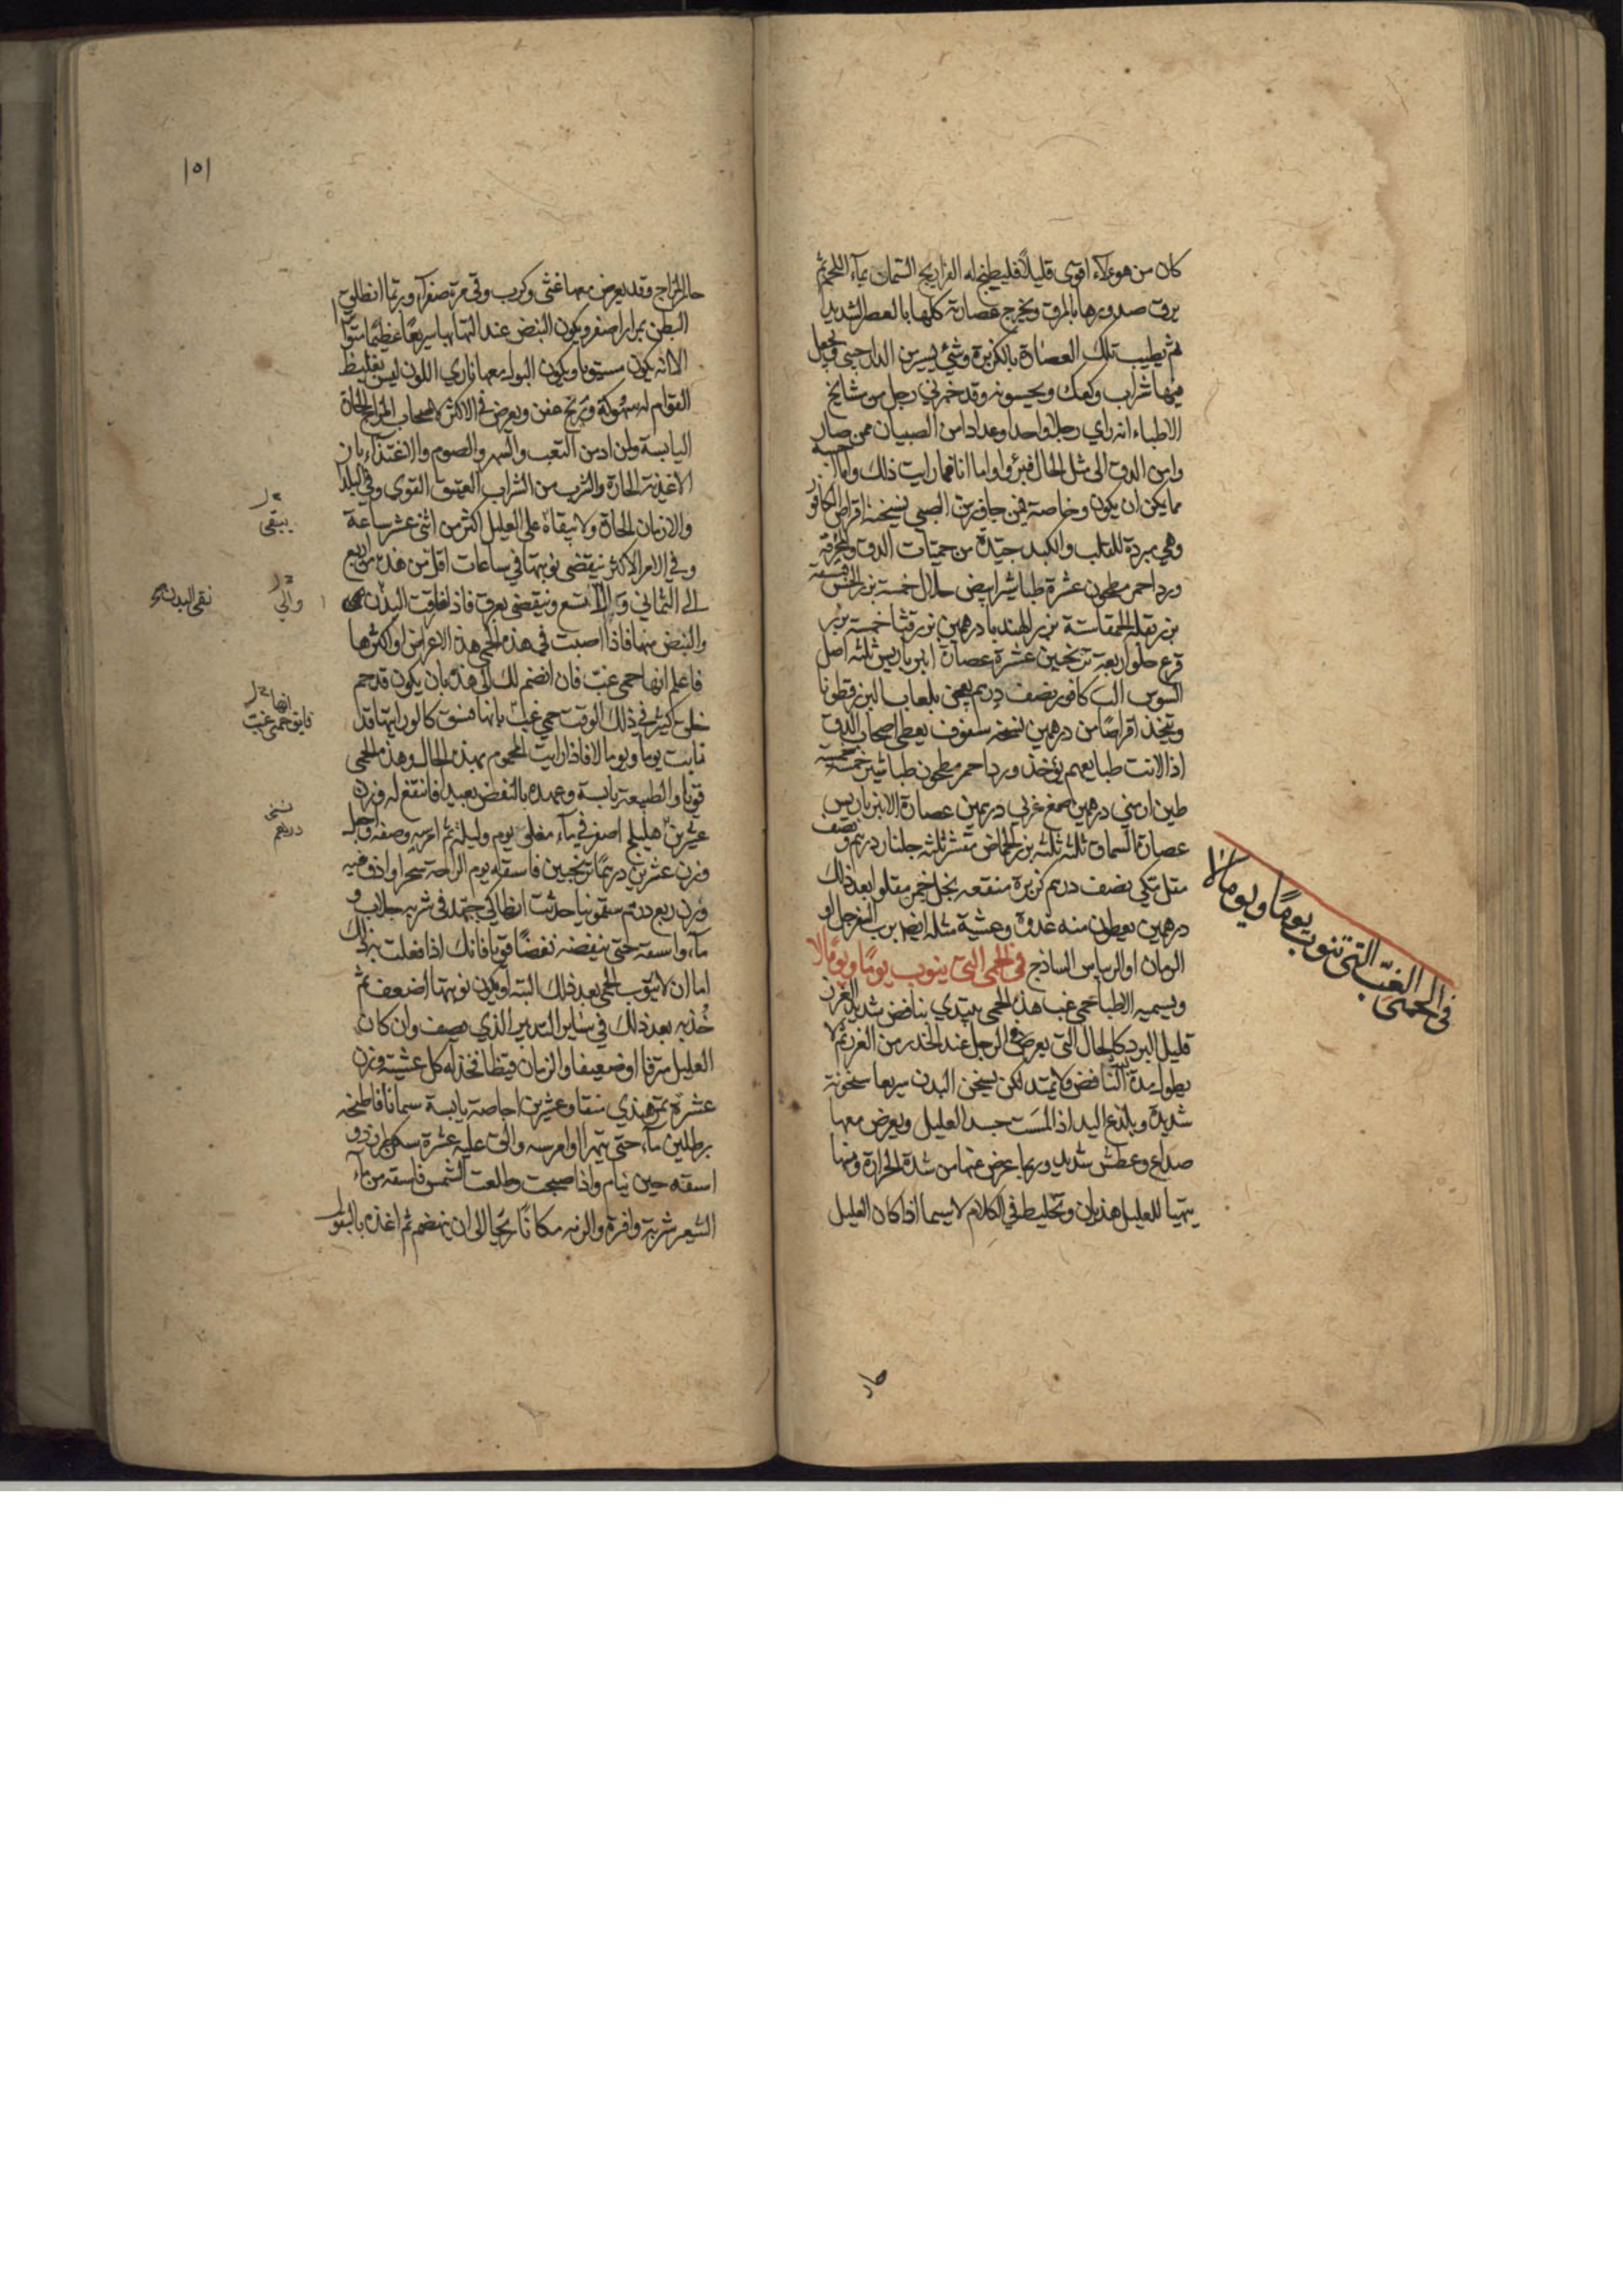 كان من هولاء اقوى قليلا فليطبخ له الفراريج السمان بماء اللحم ثم
يرق صدورها بالمرق ويخرج عصارته كلها بالعصر الشديد
ثم يطيب تلك العصارة بالكزبرة وشئ يسير من الدارجيني ويجعل
فيها شراب وكعك ويحسونه وقد خبرني رجل من مشايخ
الاطباء انه راى رجلا واحدا وعدادا من الصبيان ممن صار
وامن الدق الى مثل الحال فبرؤا واما انا فما رايت ذلك
مما يمكن ان يكون وخاصة فيمن جاف من الصبى نسخة اقراص الكافور
وهي مبردة للقلب والكبد جيدة من حميات الدق والمحرقة
ورد احمر مطحون عشرة طباشير ابيض حلال خمسة بزر الخس خمسة
بزر بقلة الحمقا ستة بزر الهندبا درهمين بزر قثا خمسة بزر
قرع حلو اربعة ترنجبين عشرة عصارة امبرباريس ثلثه اصل
السوس الب كافور نصف درهم يعجن بلعاب البزرقطونا
ويتخذ اقراصا من درهمين نسخة سفوف يعطى اصحاب الدق
اذا لانت طبايعهم يؤخذ ورد احمر مطحون طباشير خمسة خمسة
طين ارمني درهمين صمغ عربي درهمين عصارة الانبرباريس
عصارة السماق ثلثه ثلثه بزر الحماض مقشر ثلثه جلنار درهم ونصف
مقل مكي نصف درهم كزبرة منقعه بخل خمر مقلوا بعد ذلك
درهمين يعطون منه غدوة وعشية مثله ايضا برب السفرجل او
الرمان او الريباس الساذج في الحمى التي ينوب يوما ويوما لا
ويسميه الاطبا حمى غب هذه الحمى يبتدي بنافض شديد الغرز
قليل البرد كالحال التي يعرض في الرجل عند الخدر من الغرز ثم لا
يطول مدة النافض ولا يمتد لكن يسخن البدن سريعا سخونة
شديدة ويلذع اليد اذا لمست جسد العليل ويعرض معها
صداع وعطش شديد وربما عرض عنها من شدة الحرارة ومنها
يتهيا للعليل هذيان وتخليط في الكلام لاسيما اذا كان العليل
حار
في الحمى الغب التي تنوب يوما ويوما لا
١٥١
حار المزاج وقد يعرض معها غثى وكرب وقى مرة صفرآء وربما انطلق
البطن بمرار اصفر ويكون النبض عند التهابها سريعا عظيما متواترا
الا انه يكون مستويا ويكون البول معها ناري اللون ليس بغليظ
القوام له سهوكة وريح عفن ويعرض في الاكثر لاصحاب المزاج الحارة
اليابسة ولمن ادمن التعب والسهر والصوم والاغتذآء بان
الاغذية الحارة والشرب من الشراب العتيق القوى وفي البلد
والازمان الحارة ولا يبقاه على العليل اكثر من اثنى عشر ساعة
وفي الامر الاكثر ينقضى نوبتها في ساعات اقل من هذه من اربع
الى الثمانى والا تسع وينقضى بعرق فاذا فارقت البدن
والنبض منها فاذا اصبت في هذه الحمى هذه الاعراض او اكثرها
فاعلم انها حمى غب فان انضم لك الى هذه بان يكون قد حم
خلق كثير في ذلك الوقت حمى غب بانها فثق كالوراثتها قد
نابت يوما ويوما لا فاذا رايت المحموم بهذه الحال وهذه الحمى
قويا والطبيعة يابسة وعهده بالنفض بعيد فانتقع له وزن
عشرين هليلج اصفر في ماء مغلى يوم وليلة ثم امرسه وصفه واجعل
وزن عشرين درهما ترنجبين فاسقه يوم الراحة سحرا واذف فيه
وزن ربع درهم سقمونيا حديث انطاكي جيد في شربه جلاب و
مآء واسقه حتى ينفضه نفضا قويا فانك اذا فعلت به ذلك
اما ان لا يثوب الحمى بعد ذلك البته او يكون نوبتها اضعف ثم
خذ به بعد ذلك في ساير التدبير الذي نصف وان كان
العليل مترفا او ضعيفا والزمان قيظا فخذ له كل عشية وزن
عشرة تمر هندي منقا وعشرين اجاصة يابسة سمانا فاطبخه
برطلين مآء حتى يتهرا او امرسه والق عليه عشرة سكر طبرزد و
اسقه حين ينام واذا اصبحت وطلعت الشمس فاسقه من مآء
الشعير شربة وافرة والزمه مكانا ريحا الى ان ينهضم ثم اغذه بالبقول
يبقى
والى
نقى البدن
انها
فايق حمى غب
نسخى
درهم